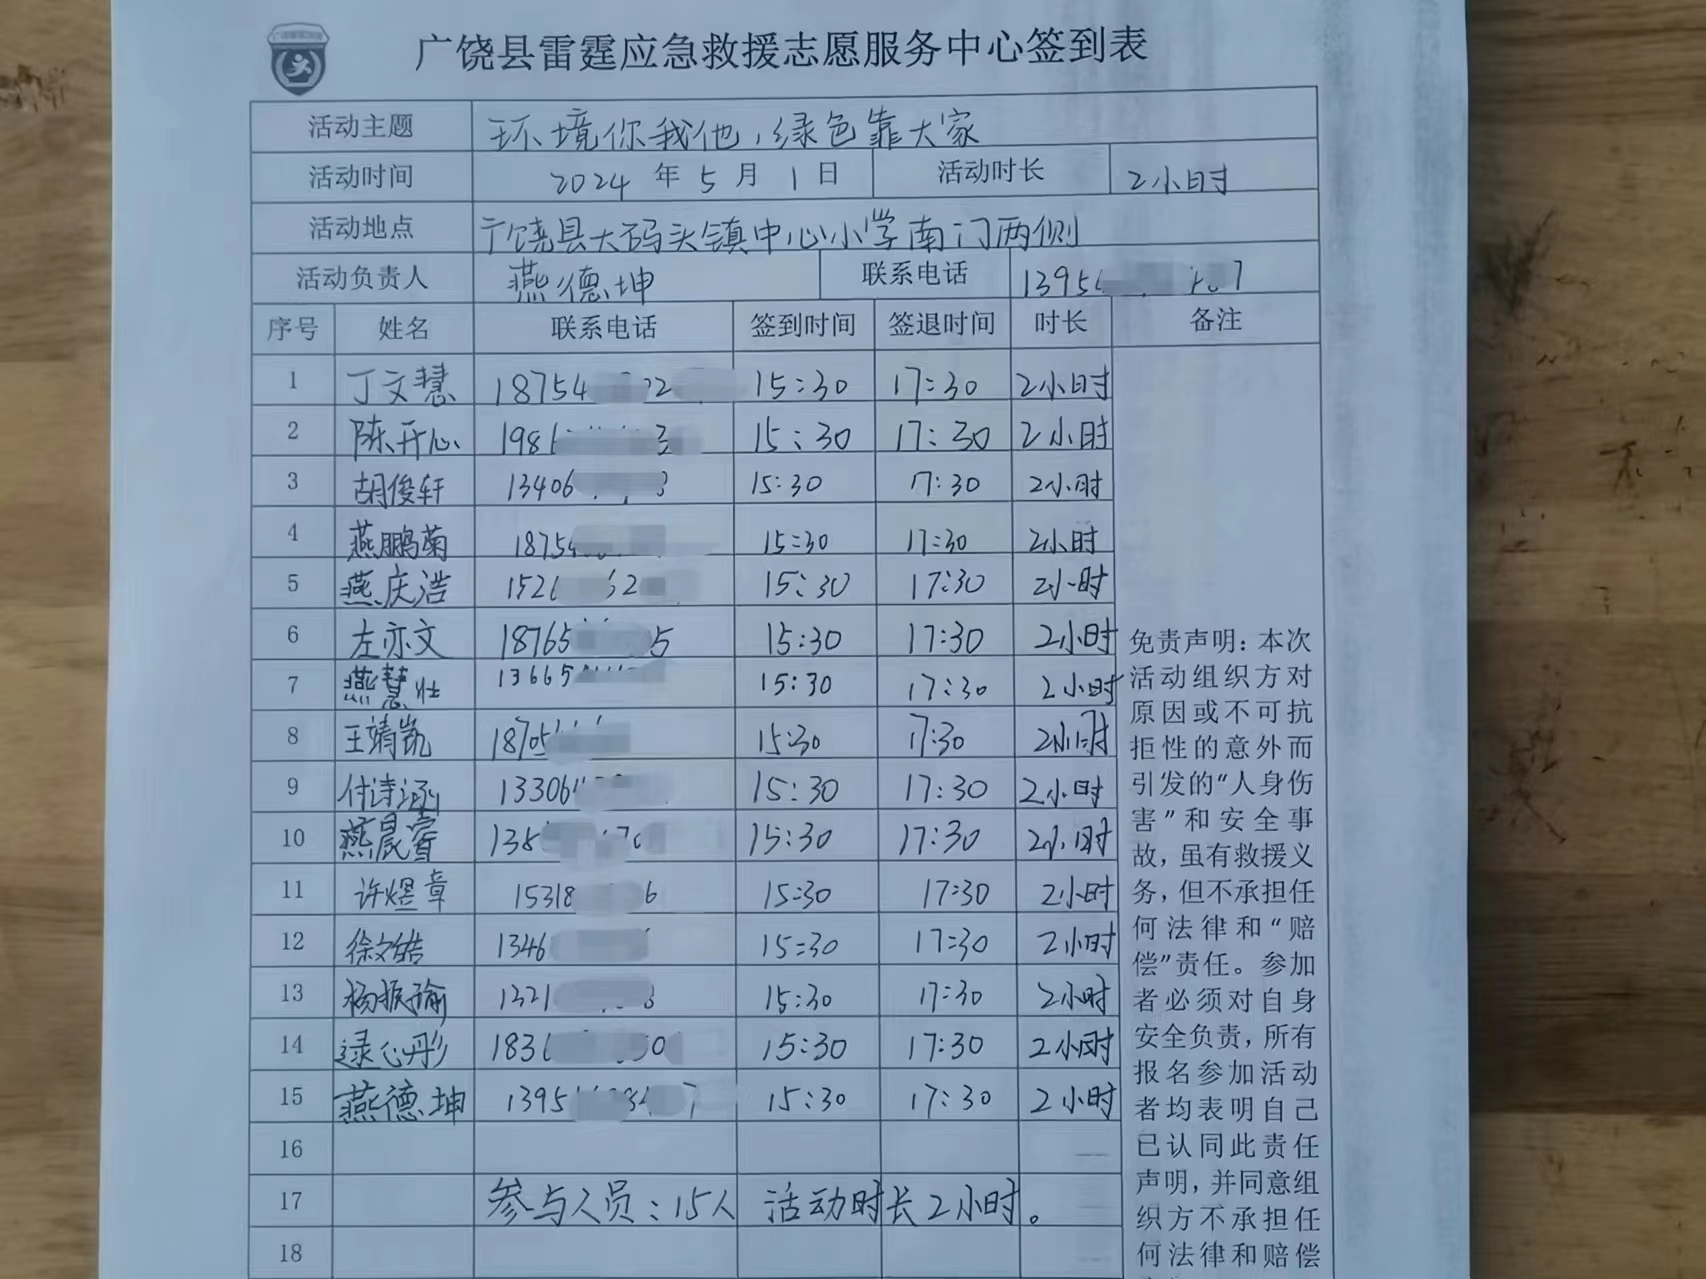 广饶县雷霆应急救援志愿服务中心签到表
活动主题 环境你我他，绿色靠大家
活动时间 2024 年 5 月 1 日 活动时长 2小时
活动地点 广饶县大码头镇中心小学南门两侧
活动负责人 燕德坤 联系电话 1395
序号 姓名 联系电话 签到时间 签退时间 时长 备注
1 丁文慧 18754 15:30 17:30 2小时
2 陈开心 198 15:30 17:30 2小时
3 胡俊轩 13406 15:30 17:30 2小时
4 燕鹏菊 1875 15:30 17:30 2小时
5 燕庆浩 152 15:30 17:30 2小时
6 左亦文 18765 5 15:30 17:30 2小时
7 燕慧壮 13665 15:30 17:30 2小时
8 王靖凯 1870 15:30 17:30 2小时
9 付诗涵 13306 15:30 17:30 2小时
10 燕晨睿 138 15:30 17:30 2小时
11 许煜章 15318 6 15:30 17:30 2小时
12 徐文皓 1346 15:30 17:30 2小时
13 杨振瑜 1321 15:30 17:30 2小时
14 逯心彤 183 15:30 17:30 2小时
15 燕德坤 1395 15:30 17:30 2小时
16
17 参与人员：15人 活动时长2小时。
18
免责声明：本次
活动组织方对
原因或不可抗
拒性的意外而
引发的“人身伤
害”和安全事
故，虽有救援义
务，但不承担任
何法律和“赔
偿”责任。参加
者必须对自身
安全负责，所有
报名参加活动
者均表明自己
已认同此责任
声明，并同意组
织方不承担任
何法律和赔偿